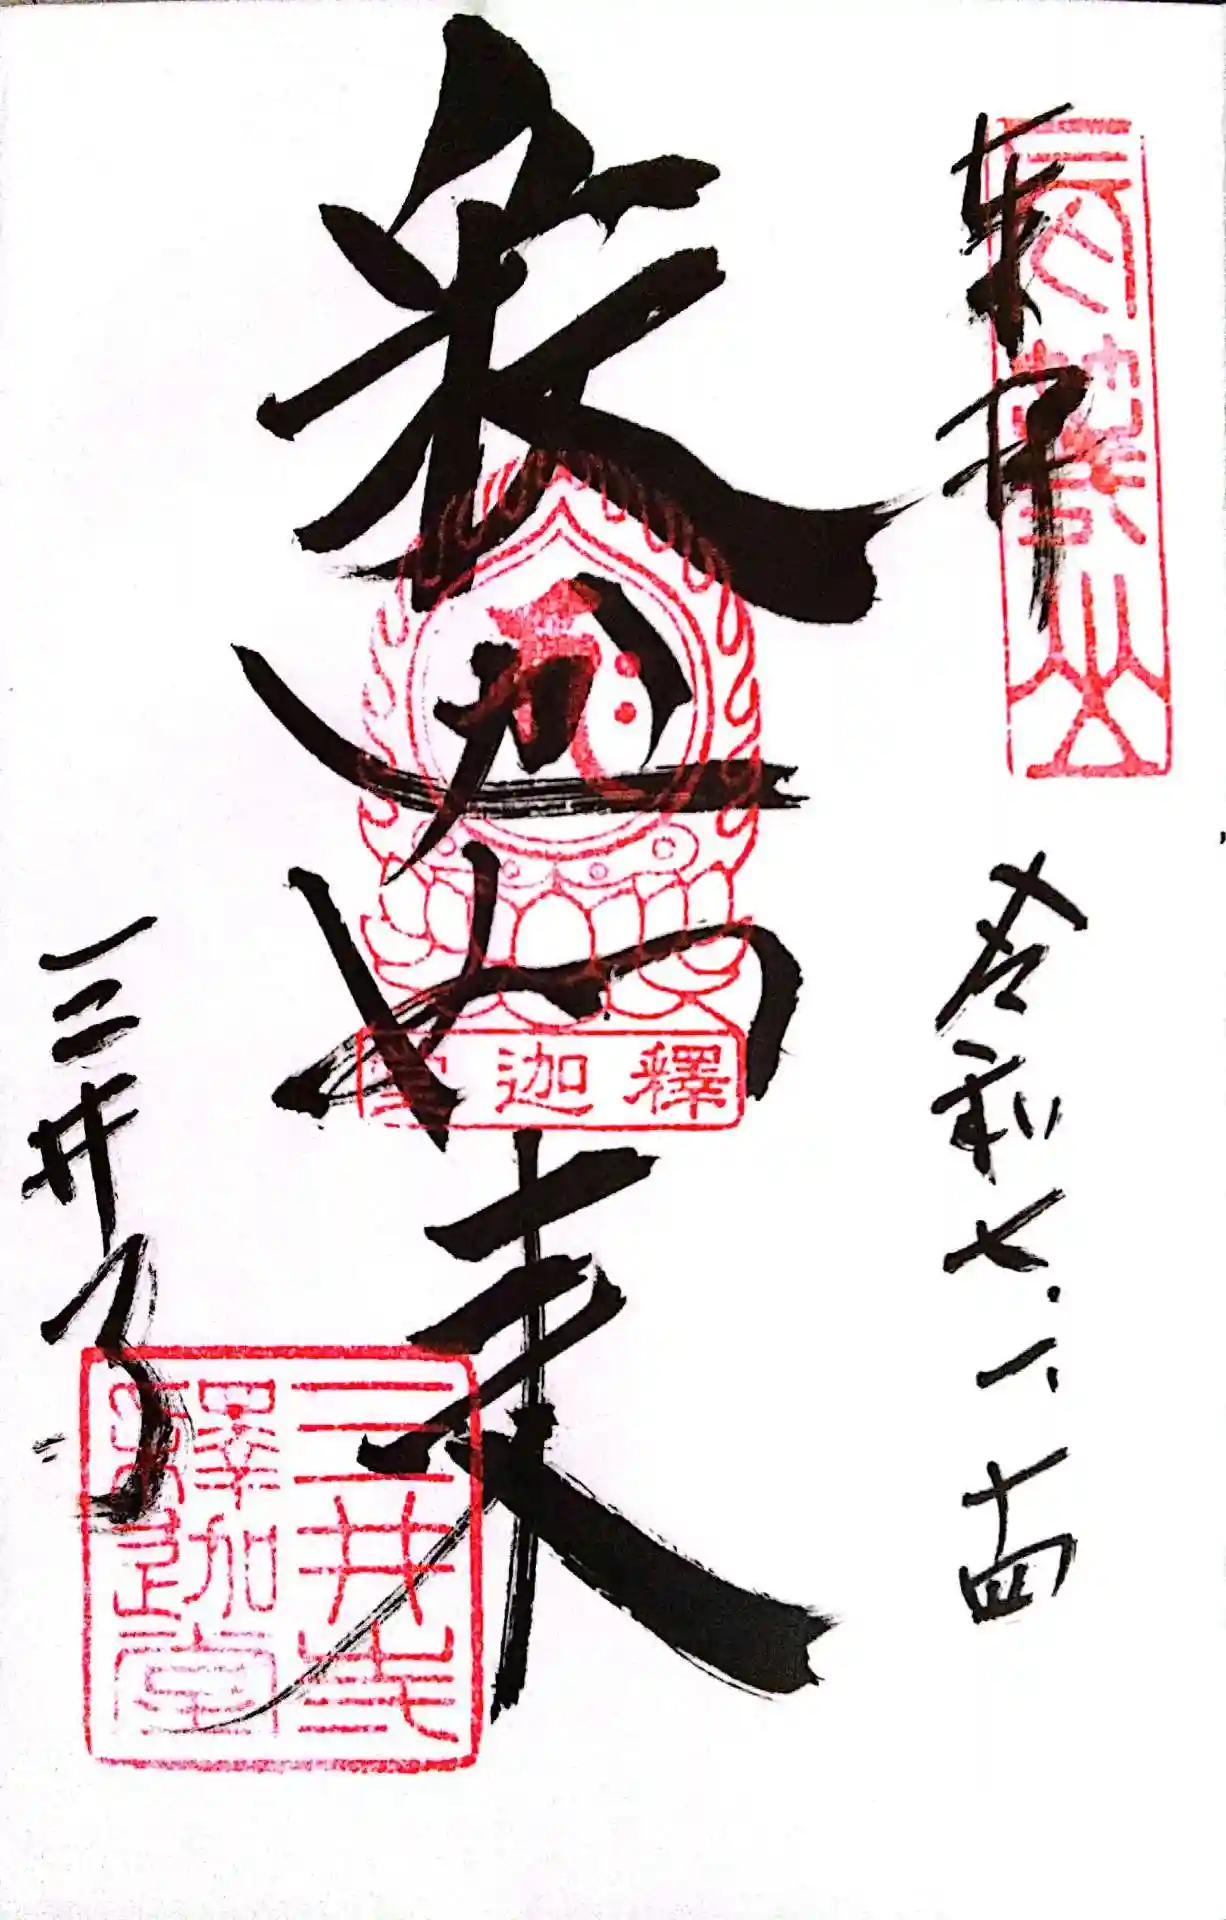 奉拝
長等山
令和七.一.十四
釈迦如来
釋迦堂
三井寺
三井寺
釋迦堂